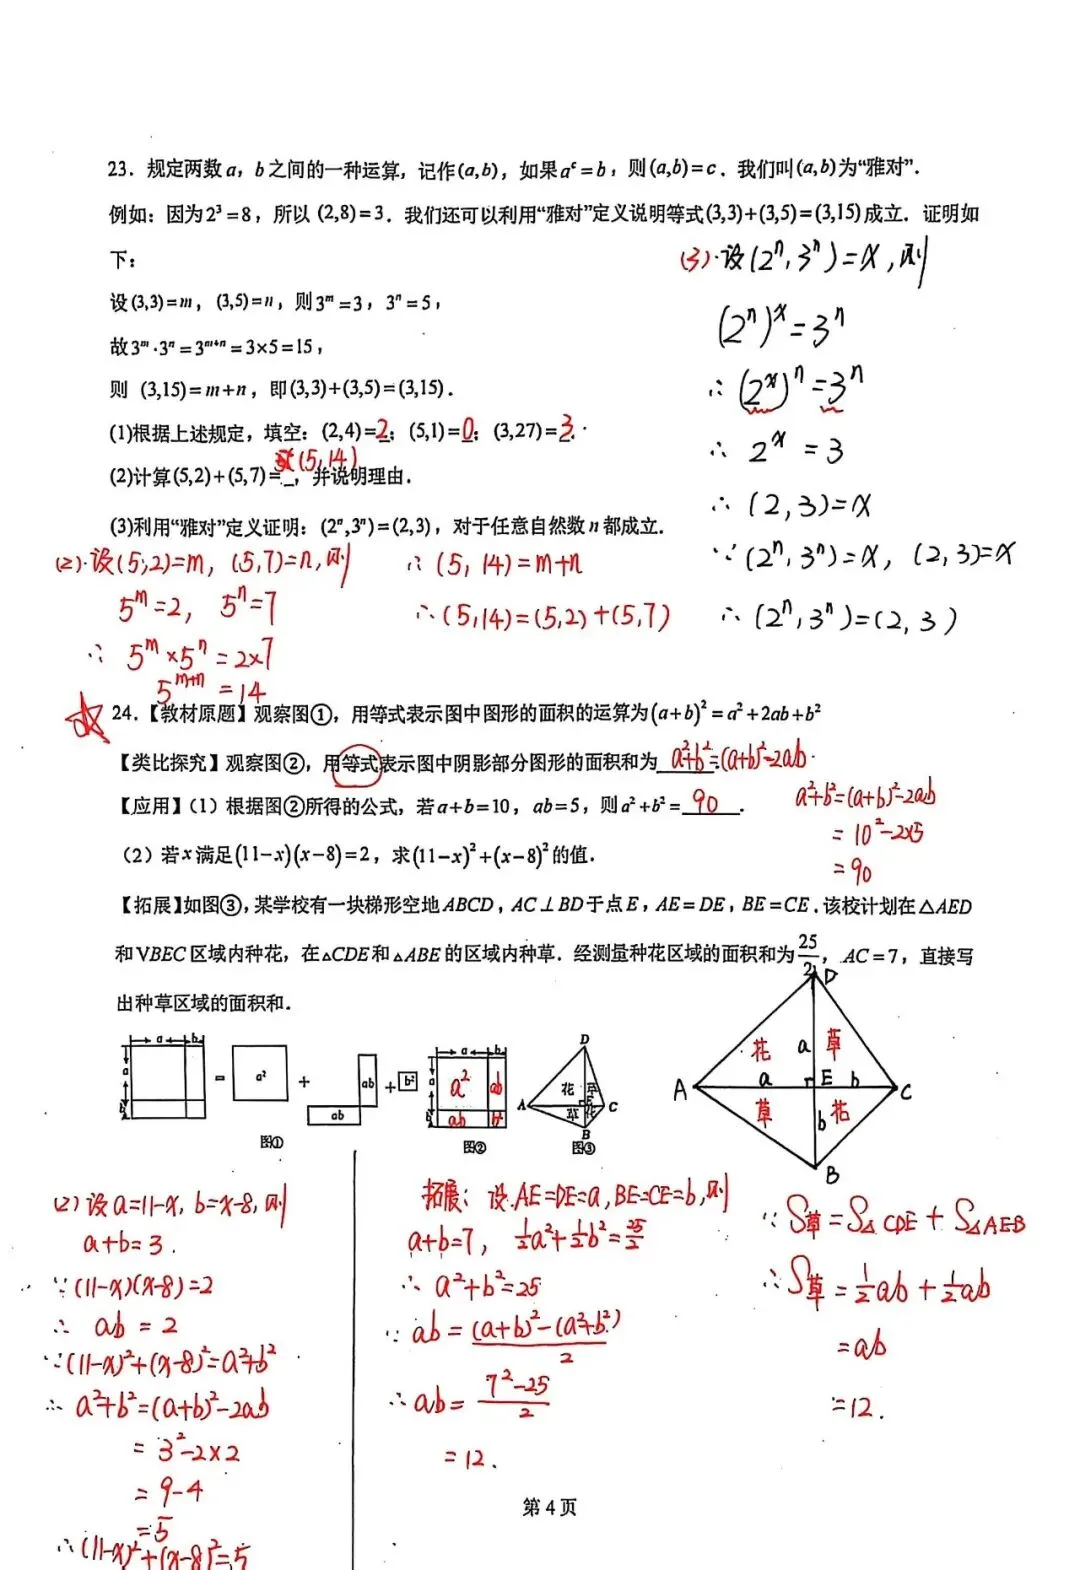 23. 规定两数a，b之间的一种运算，记作(a,b)，如果aᶜ=b，则(a,b)=c．我们叫(a,b)为“雅对”．
例如：因为2³=8，所以 (2,8)=3．我们还可以利用“雅对”定义说明等式(3,3)+(3,5)=(3,15)成立．证明如
下：
设(3,3)=m，(3,5)=n，则3ᵐ=3，3ⁿ=5，
故3ᵐ·3ⁿ=3ᵐ⁺ⁿ=3×5=15，
则 (3,15)=m+n，即(3,3)+(3,5)=(3,15)．
(1)根据上述规定，填空：(2,4)=2；(5,1)=0；(3,27)=3．
(5,14)
(2)计算(5,2)+(5,7)=_，并说明理由．
(3)利用“雅对”定义证明：(2ⁿ,3ⁿ)=(2,3)，对于任意自然数n都成立．
(3)·设(2ⁿ,3ⁿ)=x,则
(2ⁿ)ˣ=3ⁿ
∴(2ˣ)ⁿ=3ⁿ
∴ 2ˣ=3
∴ (2,3)=x
∵(2ⁿ,3ⁿ)=x, (2,3)=x
∴(2ⁿ,3ⁿ)=(2,3)
(2)·设(5,2)=m, (5,7)=n,则
5ᵐ=2, 5ⁿ=7
∴ 5ᵐ×5ⁿ=2×7
5ᵐ⁺ⁿ=14
∴(5,14)=m+n
∴(5,14)=(5,2)+(5,7)
24.【教材原题】观察图①，用等式表示图中图形的面积的运算为(a+b)²=a²+2ab+b²
【类比探究】观察图②，用等式表示图中阴影部分图形的面积和为 a²+b²=(a+b)²-2ab．
【应用】（1）根据图②所得的公式，若a+b=10，ab=5，则a²+b²=90．
a²+b²=(a+b)²-2ab
=10²-2×5
=90
（2）若x满足(11-x)(x-8)=2，求(11-x)²+(x-8)²的值．
【拓展】如图③，某学校有一块梯形空地ABCD，AC⊥BD于点E，AE=DE，BE=CE．该校计划在△AED
和VBEC区域内种花，在△CDE和△ABE的区域内种草．经测量种花区域的面积和为25/2，AC=7，直接写
出种草区域的面积和．
a b
a
b
=
a²
+
ab
ab
+
b²
图①
a b
a
b
a² ab
ab b²
图②
D
花 草
A E C
草 花
B
图③
D
花 a 草
A a E b C
草 b 花
B
(2)设a=11-x, b=x-8,则
a+b=3.
∵(11-x)(x-8)=2
∴ ab=2
∵(11-x)²+(x-8)²=a²+b²
∴ a²+b²=(a+b)²-2ab
=3²-2×2
=9-4
=5
∴(11-x)²+(x-8)²=5
拓展：设AE=DE=a,BE=CE=b,则
a+b=7, ½a²+½b²=25/2
∴ a²+b²=25
∵ ab=((a+b)²-(a²+b²))/2
∴ab=(7²-25)/2
=12.
∵S草=S△CDE+S△AEB
∴S草=½ab+½ab
=ab
=12.
第 4 页